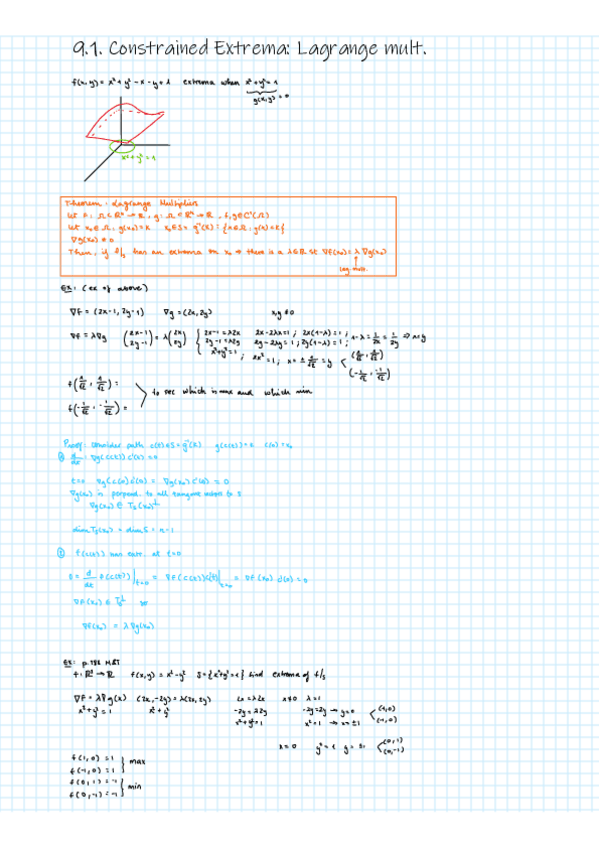 9.1. Constrained Extrema: Lagrange mult.
f(x,y) = x² + y² - x - y + 1 extrema when x² + y² = 1
g(x,y) = 0
x² + y² = 1
Theorem: Lagrange Multiplier
Let f: Ω ⊂ ℝⁿ → ℝ, g: Ω ⊂ ℝⁿ → ℝ, f,g ∈ C¹(Ω)
Let x₀ ∈ Ω, g(x₀) = k x₀ ∈ S = g⁻¹(k) = {x ∈ Ω, g(x) = k}
∇g(x₀) ≠ 0
Then, if f/s has an extrema on x₀ → there is a λ ∈ ℝ st ∇f(x₀) = λ ∇g(x₀)
Lag. mult.
Ex: (ex of above)
∇f = (2x-1, 2y-1) ∇g = (2x, 2y) x,y ≠ 0
∇f = λ∇g (2x-1 2y-1) = λ(2x 2y) { 2x-1 = λ2x 2x-2λx = 1 ; 2x(1-λ) = 1 ; 1-λ = 1/2x = 1/2y → x = y
2y-1 = λ2y 2y-2λy = 1 ; 2y(1-λ) = 1 ;
x² + y² = 1 ; 2x² = 1 ; x = ± 1/√2 = y (1/√2, 1/√2)
(-1/√2, -1/√2)
f(1/√2, 1/√2) =
to see which is max and which min
f(-1/√2, -1/√2) =
Proof: Consider path c(t) ∈ S = g⁻¹(k) g(c(t)) = k c(0) = x₀
d/dt : ∇g(c(t)) c'(t) = 0
t=0 ∇g(c(0)) c'(0) = ∇g(x₀) c'(0) = 0
∇g(x₀) is perpend. to all tangent vectors to S
∇g(x₀) ∈ Ts(x₀)⊥
dim Ts(x₀) = dim S = n-1
② f(c(t)) has extr. at t=0
0 = d/dt f(c(t))|t=0 = ∇f(c(t)) c'(t)|t=0 = ∇f(x₀) c'(0) = 0
∇f(x₀) ∈ Ts⊥ so
∇f(x₀) = λ ∇g(x₀)
Ex: p.188 M&T
f: ℝ² → ℝ f(x,y) = x² - y² S = {x² + y² = 1} find extrema of f/s
∇f = λ∇g(x) (2x, -2y) = λ(2x, 2y) 2x = λ2x x≠0 λ=1
x² + y² = 1 x² + y² -2y = λ2y -2y = 2y → y=0 (1,0)
x² + y² = 1 x² = 1 → x = ±1 (-1,0)
x=0 y² = 1 y = ±1 (0,1)
(0,-1)
f(1,0) = 1
f(-1,0) = 1 } max
f(0,1) = -1
f(0,-1) = -1 } min